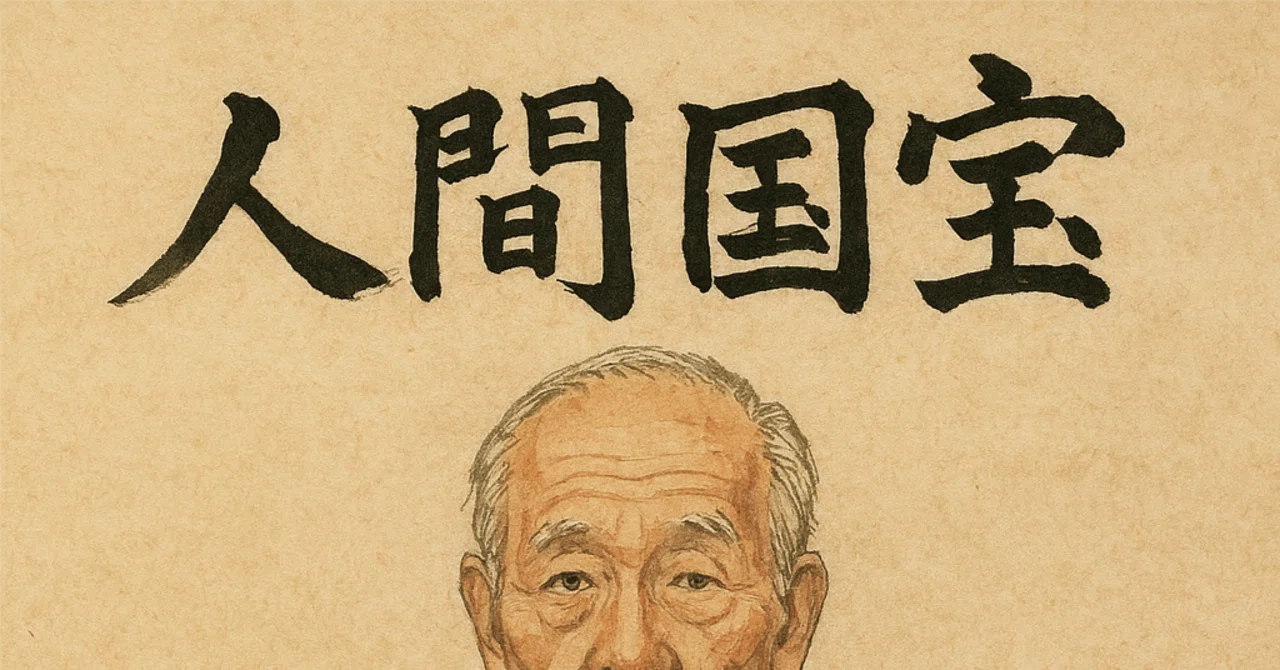 人間国宝